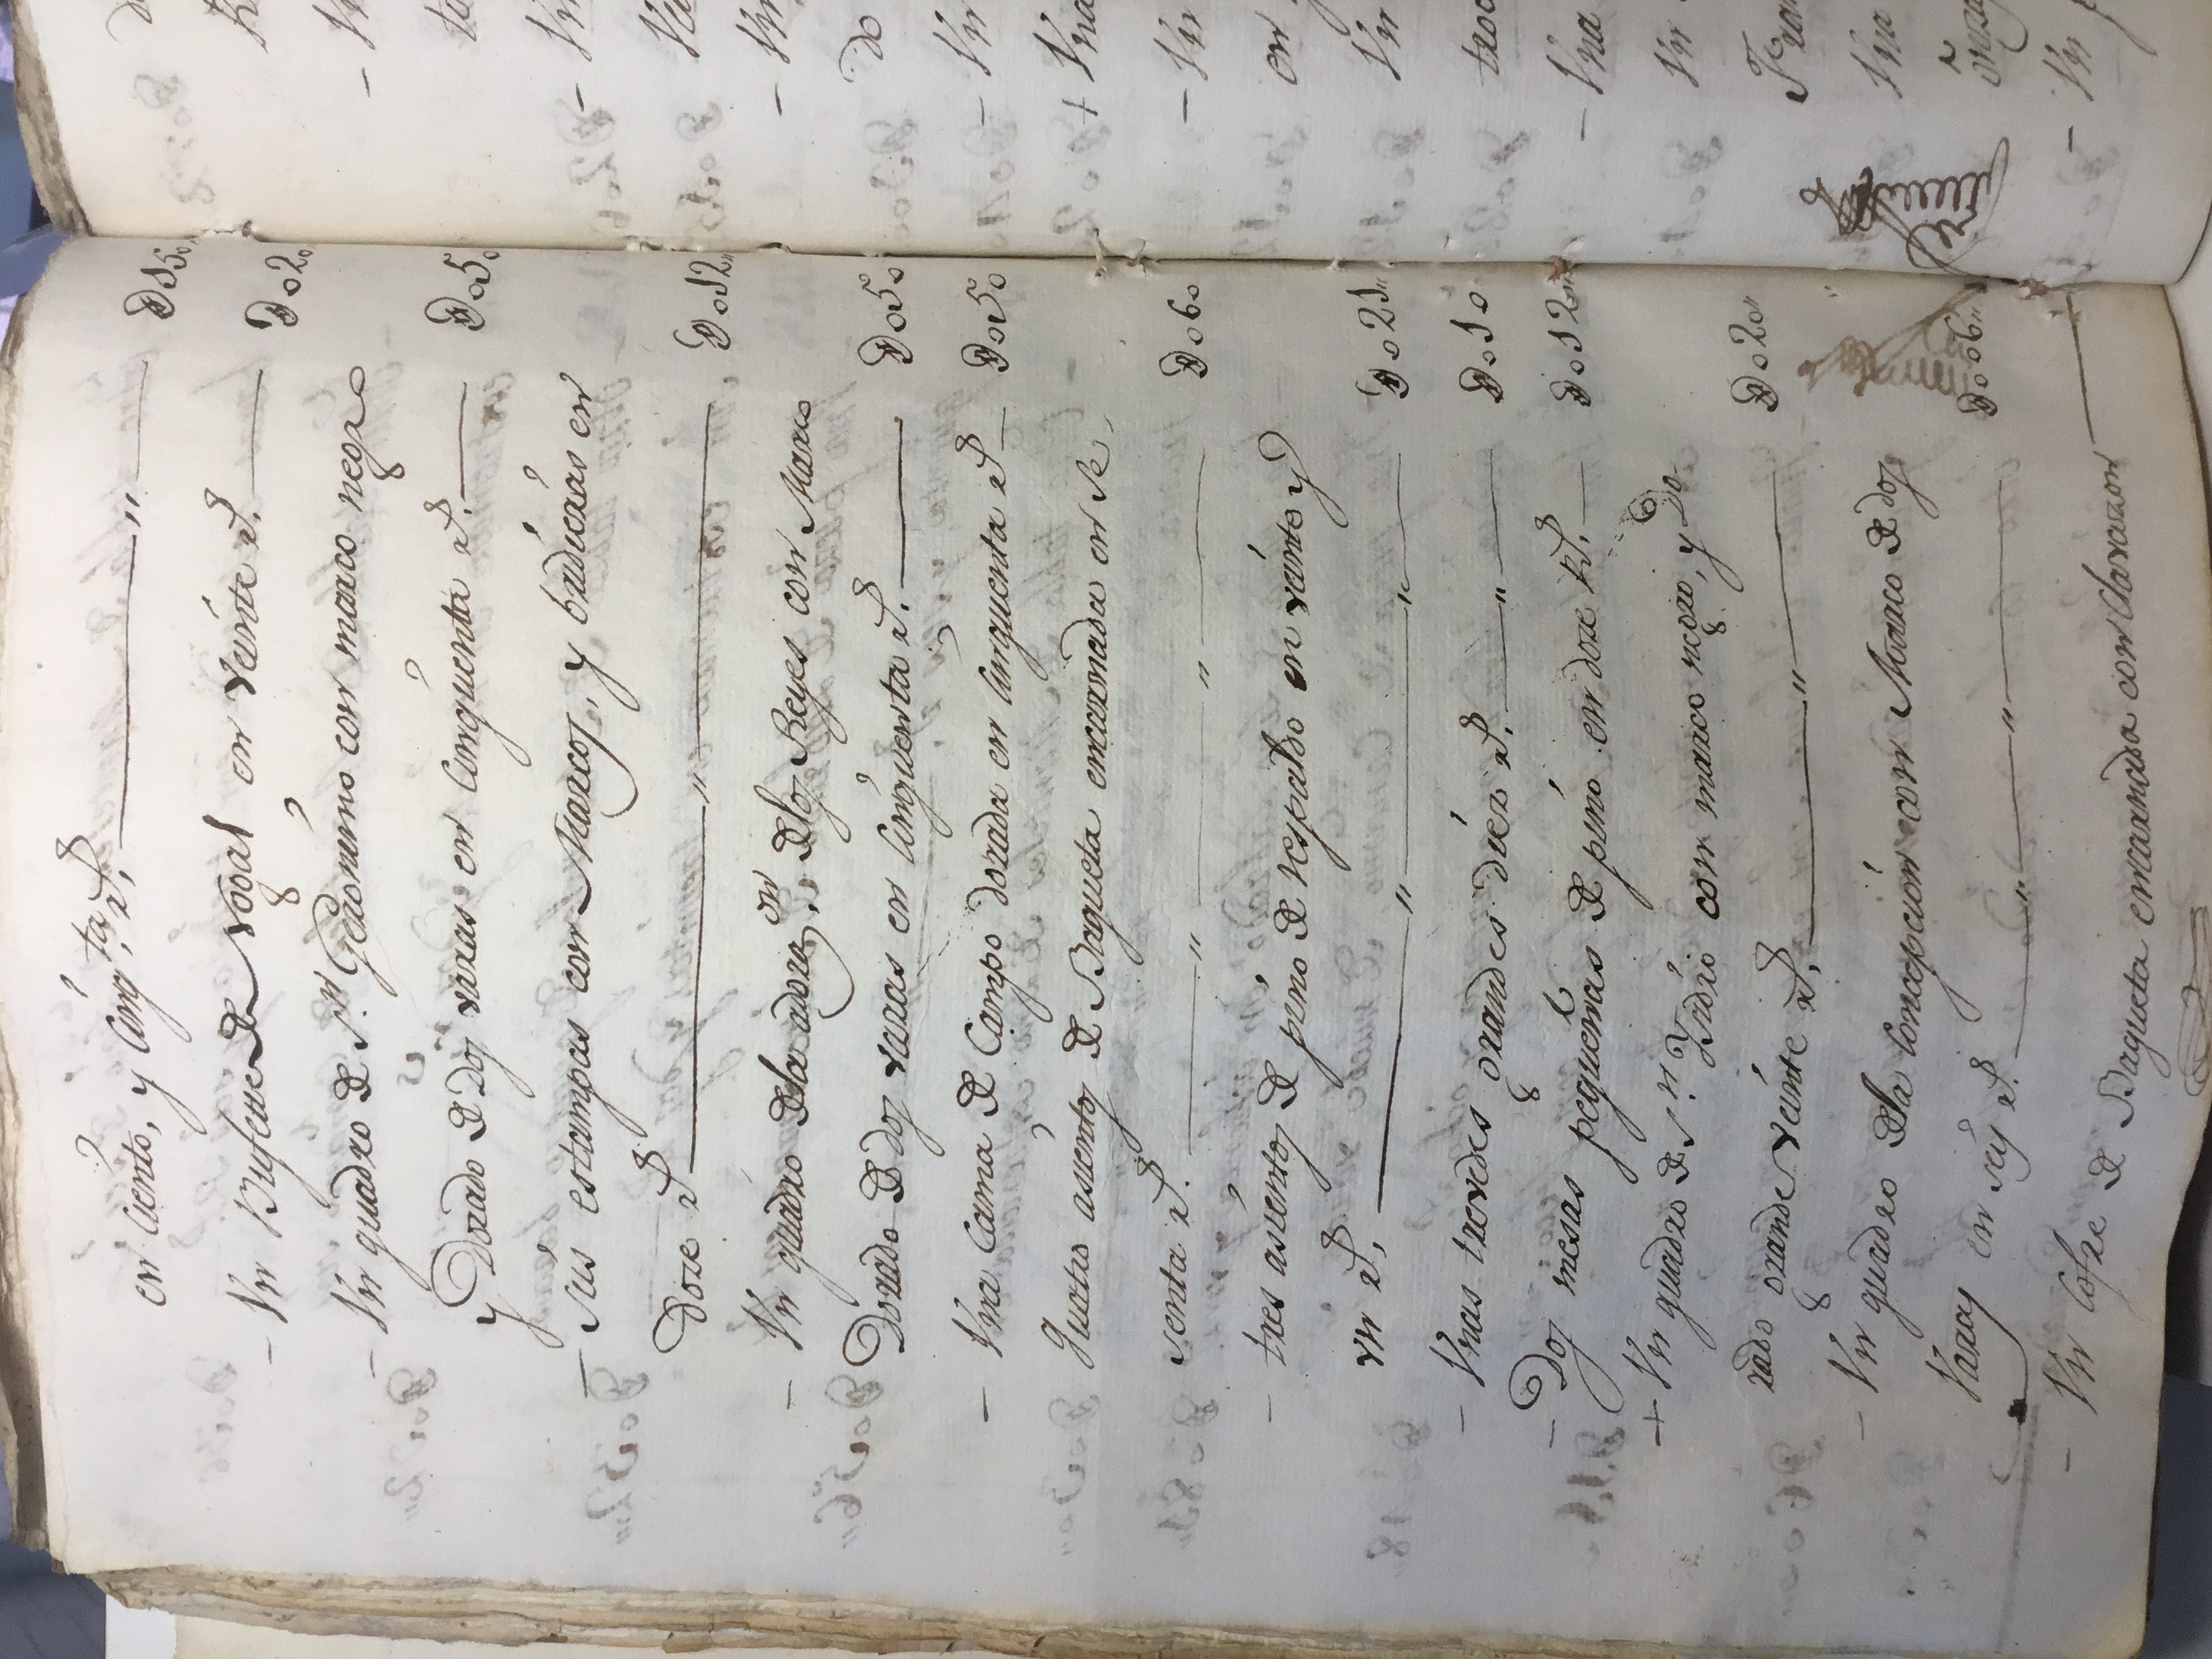 en Ciento, y Cinq.ta rs. — " — D150
— Vn Bufette de nogal en veinte rs. — D020
— Vn quadro de S.n Geronimo con marco negro
y Dorado de Dos varas en Cinquenta rs. — D050
— Seis estampas con Marcos, y vidrieras en
Doze rs. — " — D012"
— Vn quadro de la ador.on de los Reyes con Marco
Dorado de dos varas en Cinquenta rs. — D050
— Vna Cama de Campo dorada en Cinquenta rs — D050
Quatro assientos de Baqueta encarnada en se
senta rs. — " — " — D060
— tres assientos de pino de respaldo en veinte y
vn rs. — " — " — D021"
— Vnas trevedes grandes diez rs. — " — D010
— Dos mesas pequeñas de pino en doze Rs. — D012"
+ Vn quadro de S.n Ysidro con marco negro, y Do
rado grande veinte rs. — " — D020"
— Vn quadro de la Concepcion con Marco de dos
Varas en seis rs. — " — " — D006"
— Vn Cofre de Baqueta encarnada con Clavazon —